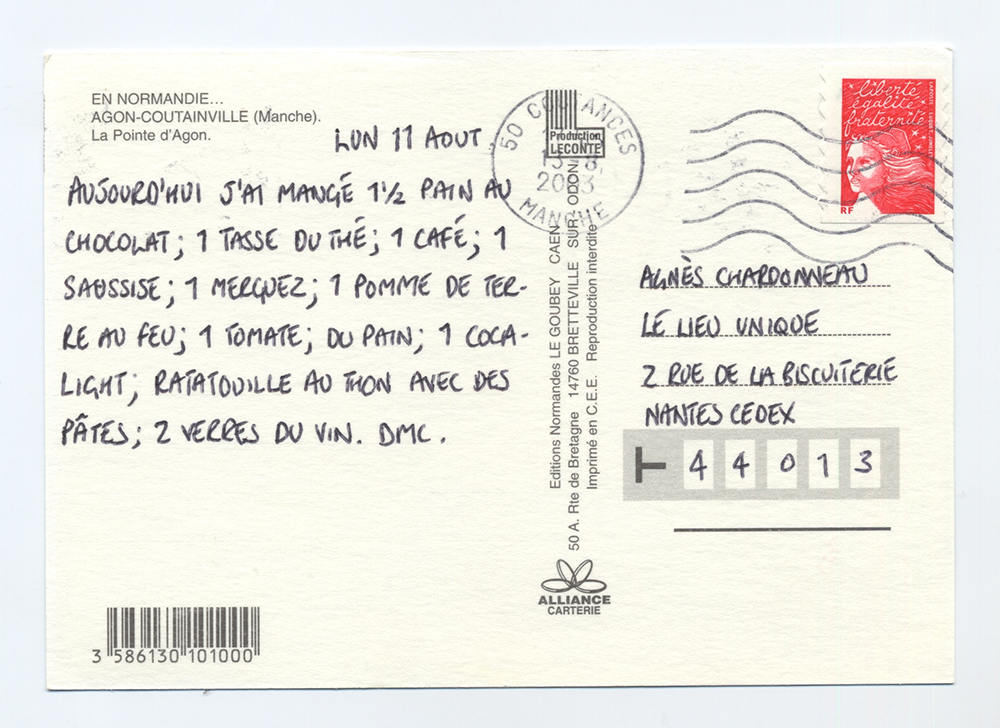 EN NORMANDIE...
AGON-COUTAINVILLE (Manche).
La Pointe d'Agon.
LUN 11 AOUT
AUJOURD'HUI J'AI MANGÉ 1½ PAIN AU
CHOCOLAT; 1 TASSE DU THÉ; 1 CAFÉ; 1
SAUSSISE; 1 MERGUEZ; 1 POMME DE TER-
RE AU FEU; 1 TOMATE; DU PAIN; 1 COCA-
LIGHT; RATATOUILLE AU THON AVEC DES
PÂTES; 2 VERRES DU VIN. DMC.
3 586130 101000
Production
LECONTE
Editions Normandes LE GOUBEY CAEN
50 A. Rte de Bretagne 14760 BRETTEVILLE SUR ODON
Imprimé en C.E.E. Reproduction interdite
ALLIANCE
CARTERIE
50 COUTANCES
2003
MANCHE
liberté
égalité
fraternité
RF
AGNÈS CHARDONNEAU
LE LIEU UNIQUE
2 RUE DE LA BISCUITERIE
NANTES CEDEX
44013